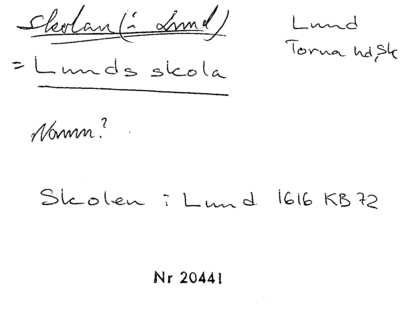 skolan (i Lund)
= Lunds skola
Lund
Torna hd, Sk
Namn?
Skolen i Lund 1616 KB 72
Nr 20441